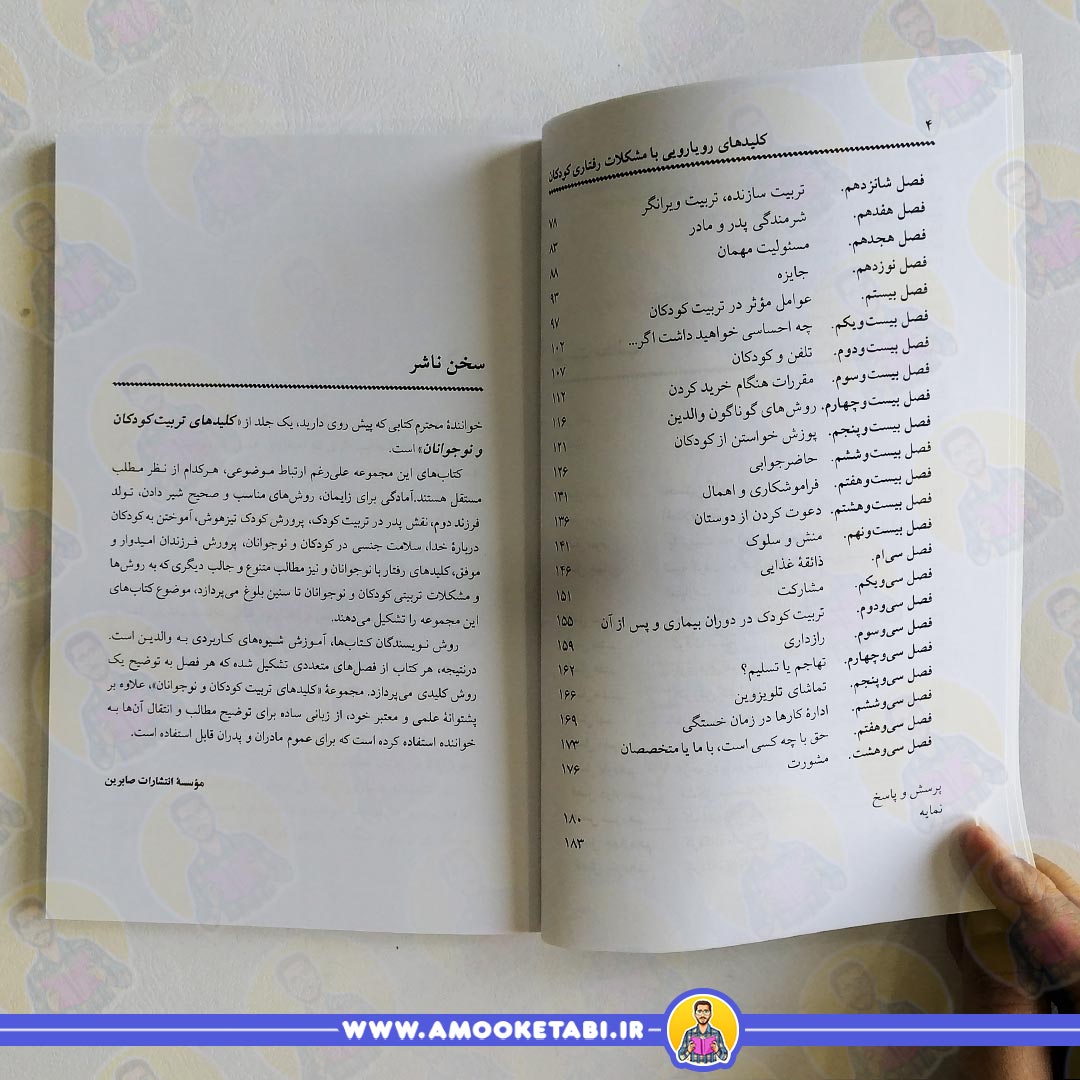 ۴
کلیدهای رویارویی با مشکلات رفتاری کودکان
فصل شانزدهم. تربیت سازنده، تربیت ویرانگر ۷۸
فصل هفدهم. شرمندگی پدر و مادر ۸۳
فصل هجدهم. مسئولیت مهمان ۸۸
فصل نوزدهم. جایزه ۹۳
فصل بیستم. عوامل مؤثر در تربیت کودکان ۹۷
فصل بیست‌ویکم. چه احساسی خواهید داشت اگر... ۱۰۲
فصل بیست‌ودوم. تلفن و کودکان ۱۰۷
فصل بیست‌وسوم. مقررات هنگام خرید کردن ۱۱۲
فصل بیست‌وچهارم. روش‌های گوناگون والدین ۱۱۶
فصل بیست‌وپنجم. پوزش خواستن از کودکان ۱۲۱
فصل بیست‌وششم. حاضرجوابی ۱۲۶
فصل بیست‌وهفتم. فراموشکاری و اهمال ۱۳۱
فصل بیست‌وهشتم. دعوت کردن از دوستان ۱۳۶
فصل بیست‌ونهم. منش و سلوک ۱۴۱
فصل سی‌ام. ذائقهٔ غذایی ۱۴۶
فصل سی‌ویکم. مشارکت ۱۵۱
فصل سی‌ودوم. تربیت کودک در دوران بیماری و پس از آن ۱۵۵
فصل سی‌وسوم. رازداری ۱۵۹
فصل سی‌وچهارم. تهاجم یا تسلیم؟ ۱۶۲
فصل سی‌وپنجم. تماشای تلویزیون ۱۶۶
فصل سی‌وششم. ادارهٔ کارها در زمان خستگی ۱۶۹
فصل سی‌وهفتم. حق با چه کسی است، با ما یا متخصصان ۱۷۳
فصل سی‌وهشت. مشورت ۱۷۶
پرسش و پاسخ ۱۸۰
نمایه ۱۸۳
سخن ناشر
خوانندهٔ محترم کتابی که پیش روی دارید، یک جلد از «کلیدهای تربیت کودکان
و نوجوانان» است.
کتاب‌های این مجموعه علی‌رغم ارتباط موضوعی، هرکدام از نظر مطلب
مستقل هستند. آمادگی برای زایمان، روش‌های مناسب و صحیح شیر دادن، تولد
فرزند دوم، نقش پدر در تربیت کودک، پرورش کودک تیزهوش، آموختن به کودکان
دربارهٔ خدا، سلامت جنسی در کودکان و نوجوانان، پرورش فرزندان امیدوار و
موفق، کلیدهای رفتار با نوجوانان و نیز مطالب متنوع و جالب دیگری که به روش‌ها
و مشکلات تربیتی کودکان و نوجوانان تا سنین بلوغ می‌پردازد، موضوع کتاب‌های
این مجموعه را تشکیل می‌دهند.
روش نویسندگان کتاب‌ها، آموزش شیوه‌های کاربردی به والدین است.
درنتیجه، هر کتاب از فصل‌های متعددی تشکیل شده که هر فصل به توضیح یک
روش کلیدی می‌پردازد. مجموعهٔ «کلیدهای تربیت کودکان و نوجوانان»، علاوه بر
پشتوانهٔ علمی و معتبر خود، از زبانی ساده برای توضیح مطالب و انتقال آن‌ها به
خواننده استفاده کرده است که برای عموم مادران و پدران قابل استفاده است.
مؤسسهٔ انتشارات صابرین
WWW.AMOOKETABI.IR